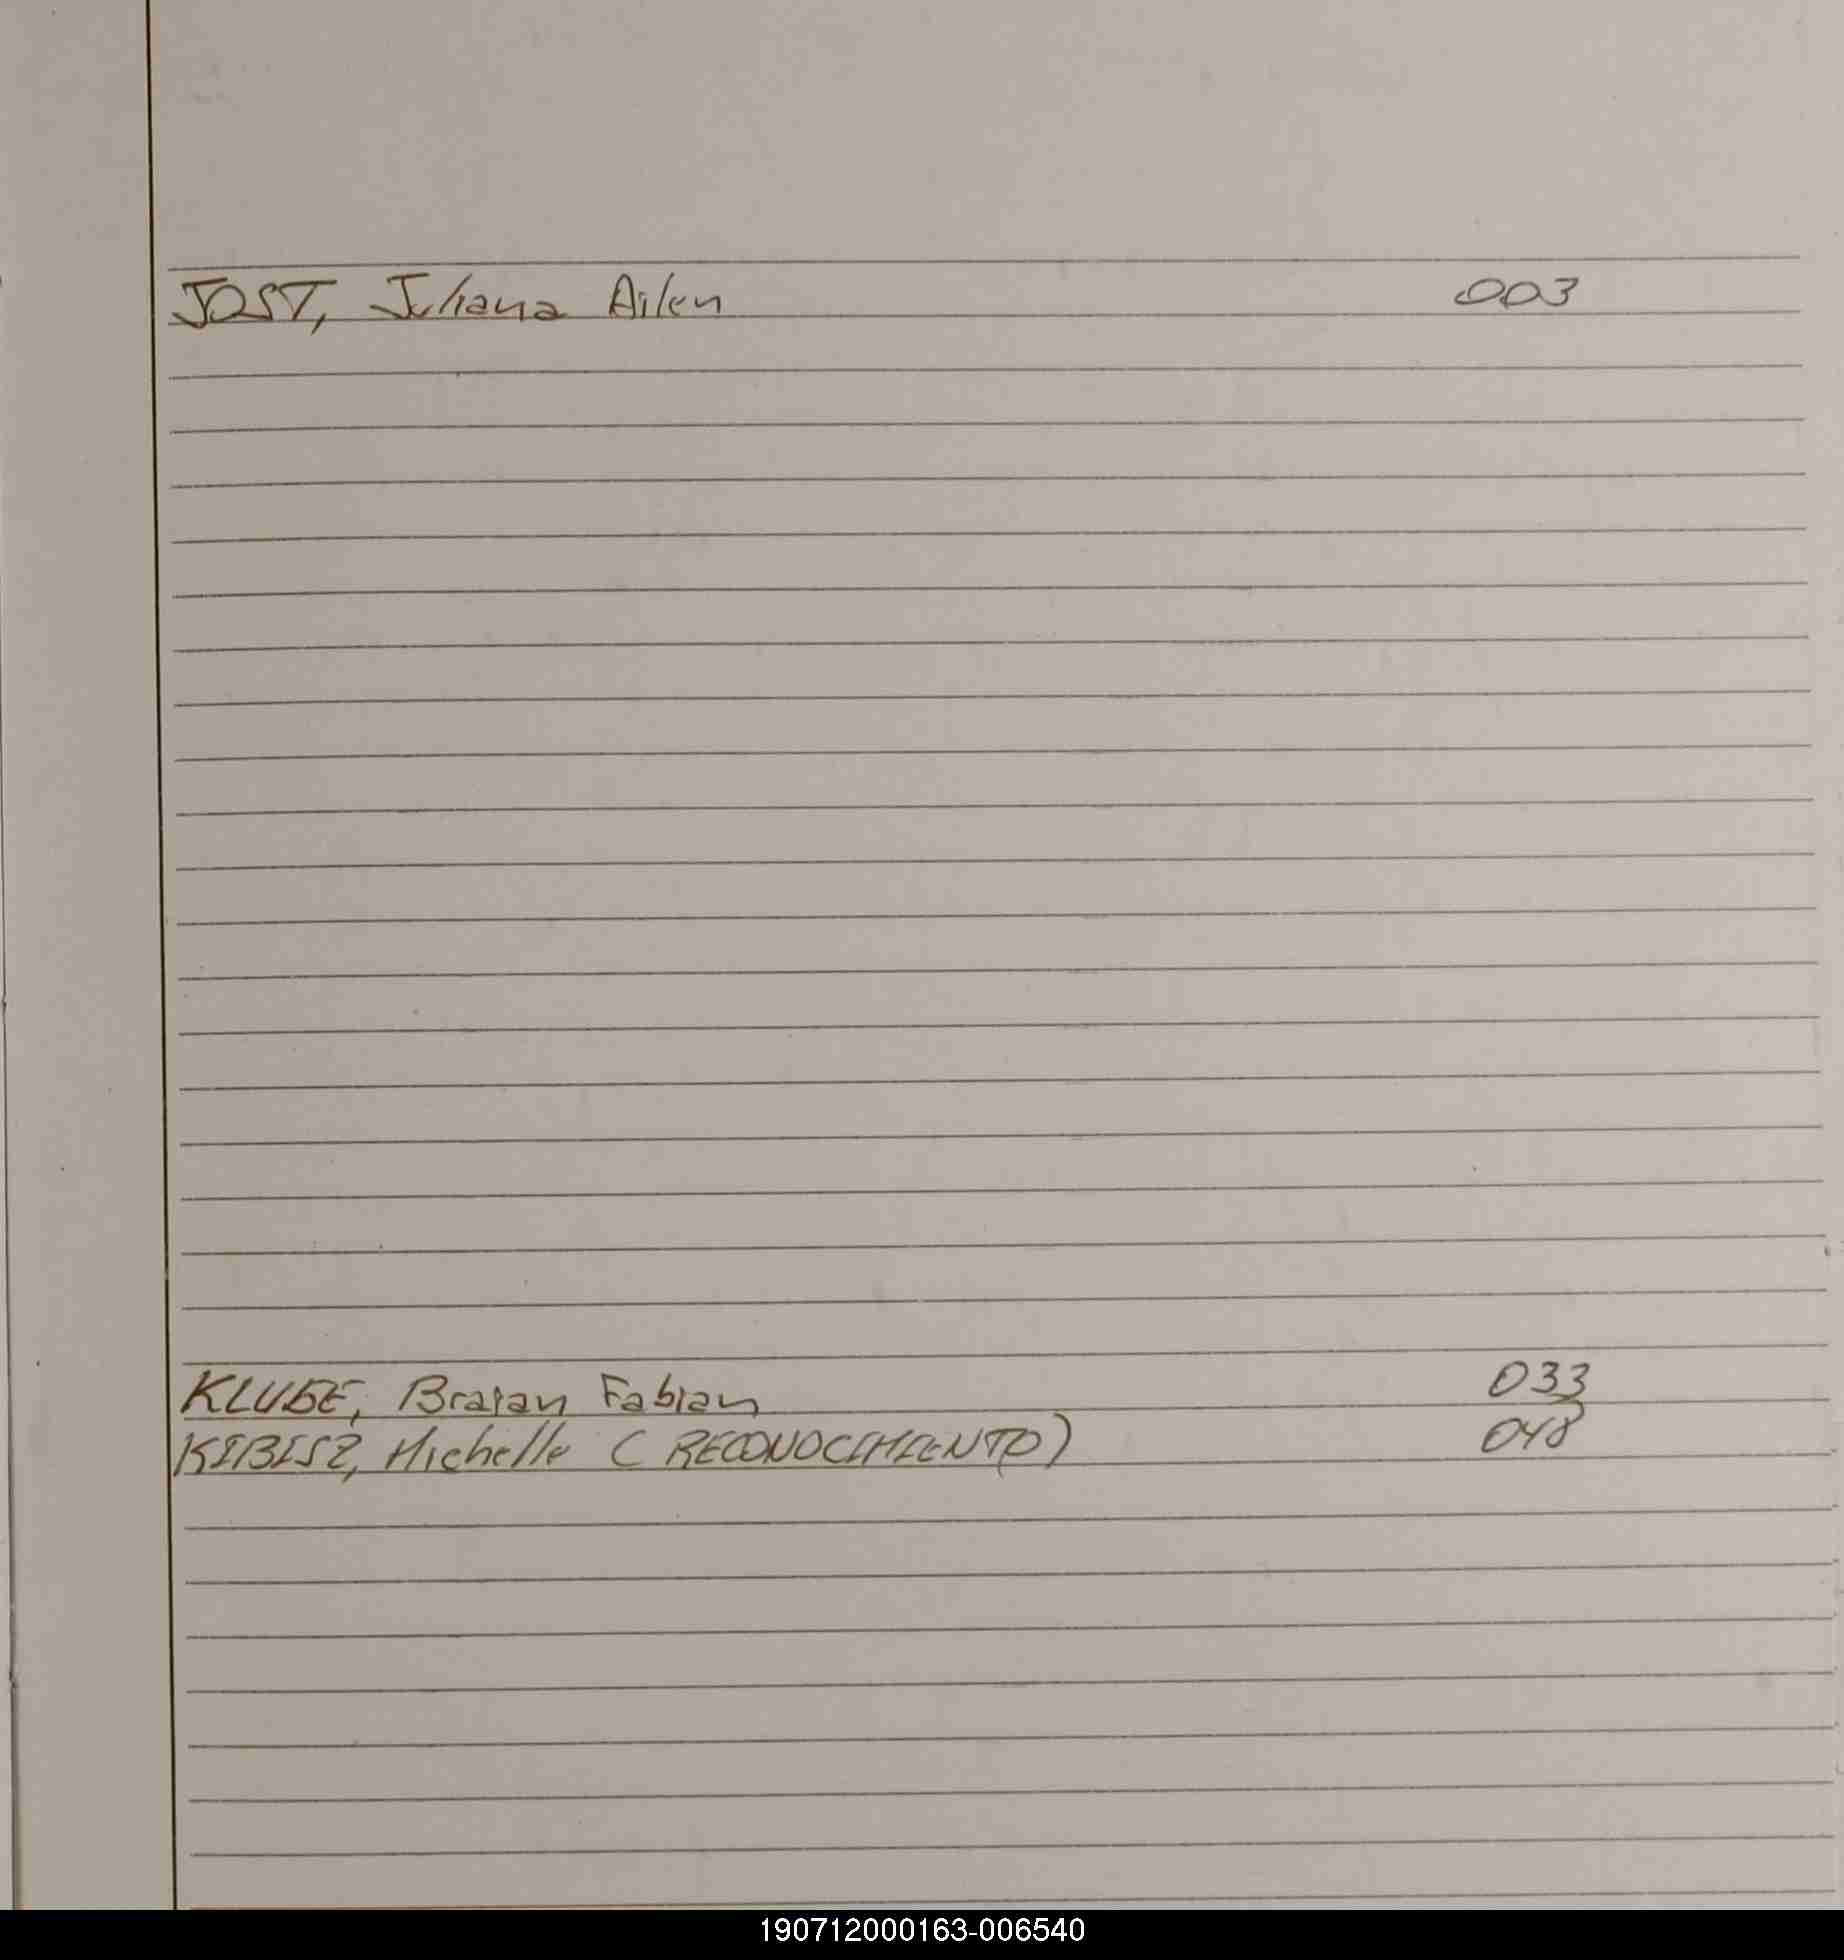 JOST, Juliana Ailen 003
KLUGE, Braian Fabian 033
KIBISZ, Michelle (RECONOCIMIENTO) 048
190712000163-006540